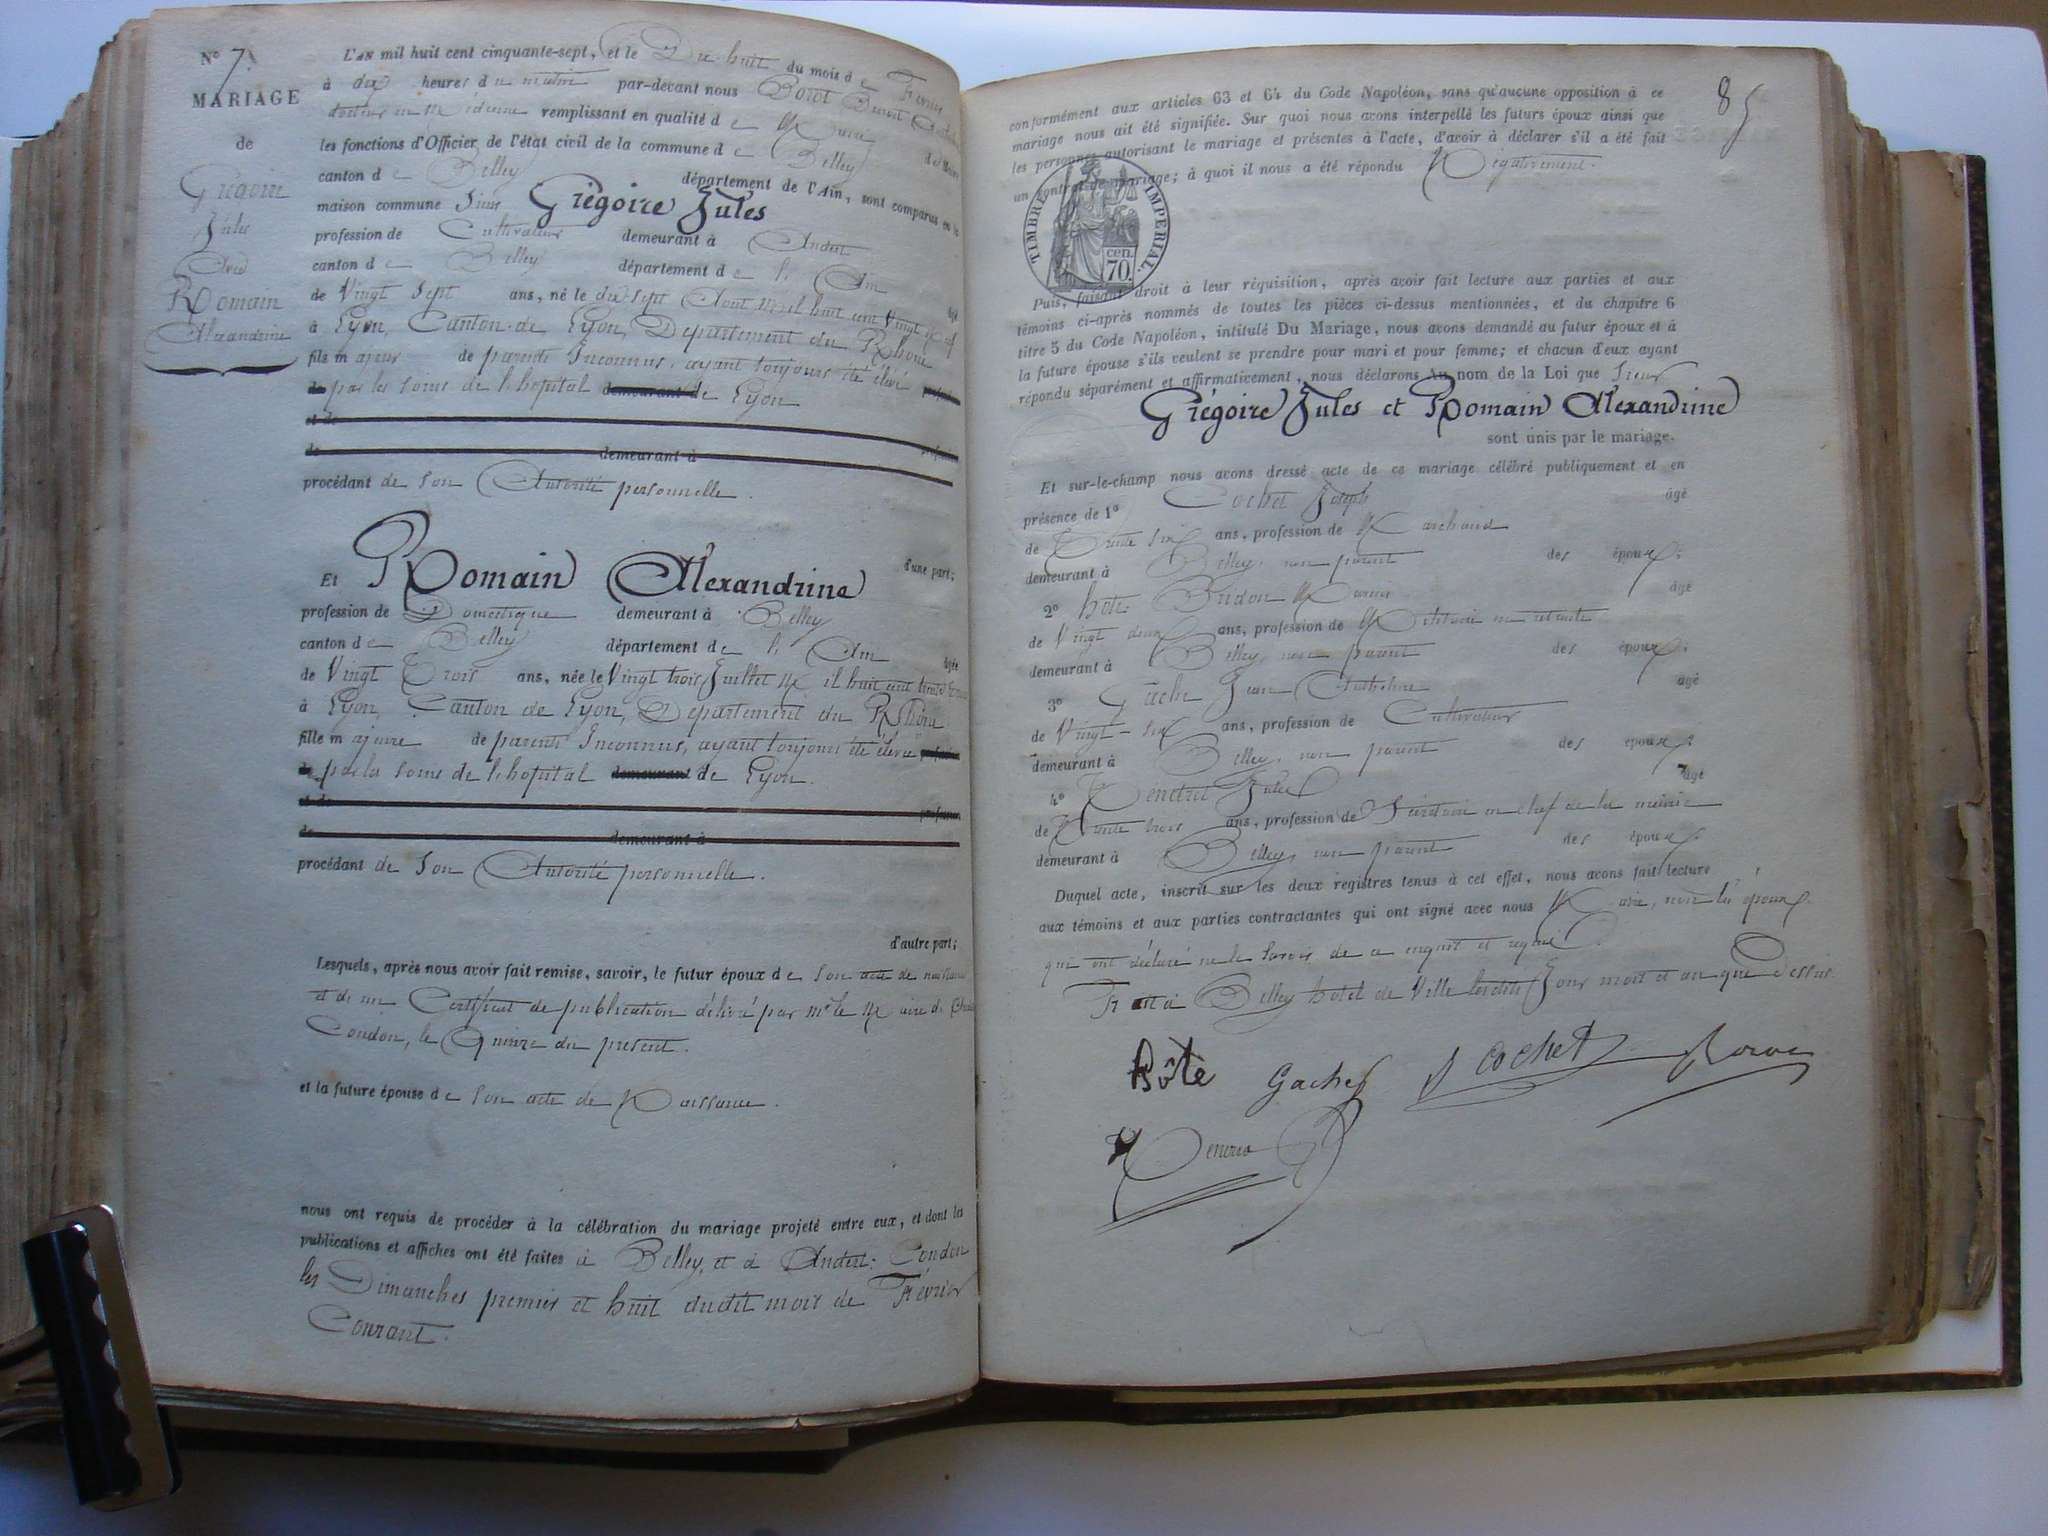 N° 7.
MARIAGE
de
Grégoire
Jules
Avec
Romain
Alexandrine
L'AN mil huit cent cinquante-sept, et le Dix huit du mois de Février
à dix heures du matin par-devant nous
docteur en Médecine remplissant en qualité de Maire
les fonctions d'Officier de l'état civil de la commune de Belley
canton de Belley département de l'Ain, sont comparus en la
maison commune Sieur Grégoire Jules
profession de Cultivateur demeurant à Andert
canton de Belley département de l'Ain
de Vingt Sept ans, né le dix sept Aout Mil huit cent Vingt neuf âgé
à Lyon, Canton de Lyon, Département du Rhône
fils majeur de parents Inconnus, ayant toujours été élevé
par les soins de l'hopital de Lyon
et de
de demeurant à
procédant de Son Autorité personnelle.
d'une part;
Et Romain Alexandrine
profession de Domestique demeurant à Belley
canton de Belley département de l'Ain âgée
de Vingt Trois ans, née le Vingt trois Juillet Mil huit cent trente trois
à Lyon, Canton de Lyon, Département du Rhône
fille majeure de parents Inconnus, ayant toujours été élevée
par les soins de l'hopital demeurant de Lyon.
et de
de demeurant à
procédant de Son Autorité personnelle.
d'autre part;
Lesquels, après nous avoir fait remise, savoir, le futur époux de son acte de naissance
et de un Certificat de publication délivré par Mr le Maire de
Condon, le Quinze du présent.
et la future épouse de son acte de Naissance.
nous ont requis de procéder à la célébration du mariage projeté entre eux, et dont les
publications et affiches ont été faites à Belley, et à Andert-Condon
les Dimanches premier et huit dudit mois de Février
Courant.
85
conformément aux articles 63 et 64 du Code Napoléon, sans qu'aucune opposition à ce
mariage nous ait été signifiée. Sur quoi nous avons interpellé les futurs époux ainsi que
les personnes autorisant le mariage et présentes à l'acte, d'avoir à déclarer s'il a été fait
un contrat de mariage; à quoi il nous a été répondu Négativement.
TIMBRE IMPÉRIAL.
70 cen.
Puis, faisant droit à leur réquisition, après avoir fait lecture aux parties et aux
témoins ci-après nommés de toutes les pièces ci-dessus mentionnées, et du chapitre 6
titre 5 du Code Napoléon, intitulé Du Mariage, nous avons demandé au futur époux et à
la future épouse s'ils veulent se prendre pour mari et pour femme; et chacun d'eux ayant
répondu séparément et affirmativement, nous déclarons Au nom de la Loi que Sieur
Grégoire Jules et Romain Alexandrine
sont unis par le mariage.
Et sur-le-champ nous avons dressé acte de ce mariage célébré publiquement et en
présence de 1° Cochet Joseph âgé
de Trente six ans, profession de Marchand
demeurant à Belley, non parent des époux;
2° âgé
de Vingt deux ans, profession de Militaire en retraite
demeurant à Belley, non parent des époux;
3° Gache Jean Anthelme âgé
de Vingt-six ans, profession de Cultivateur
demeurant à Belley, non parent des époux;
4° Jules âgé
de Trente trois ans, profession de Secrétaire en chef de la mairie
demeurant à Belley, non parent des époux.
Duquel acte, inscrit sur les deux registres tenus à cet effet, nous avons fait lecture
aux témoins et aux parties contractantes qui ont signé avec nous Maire, non les époux
qui ont déclaré ne le savoir de ce enquis et requis.
Fait à Belley hotel de Ville lesdits Jour mois et an que Dessus
Hôte Gache J Cochet